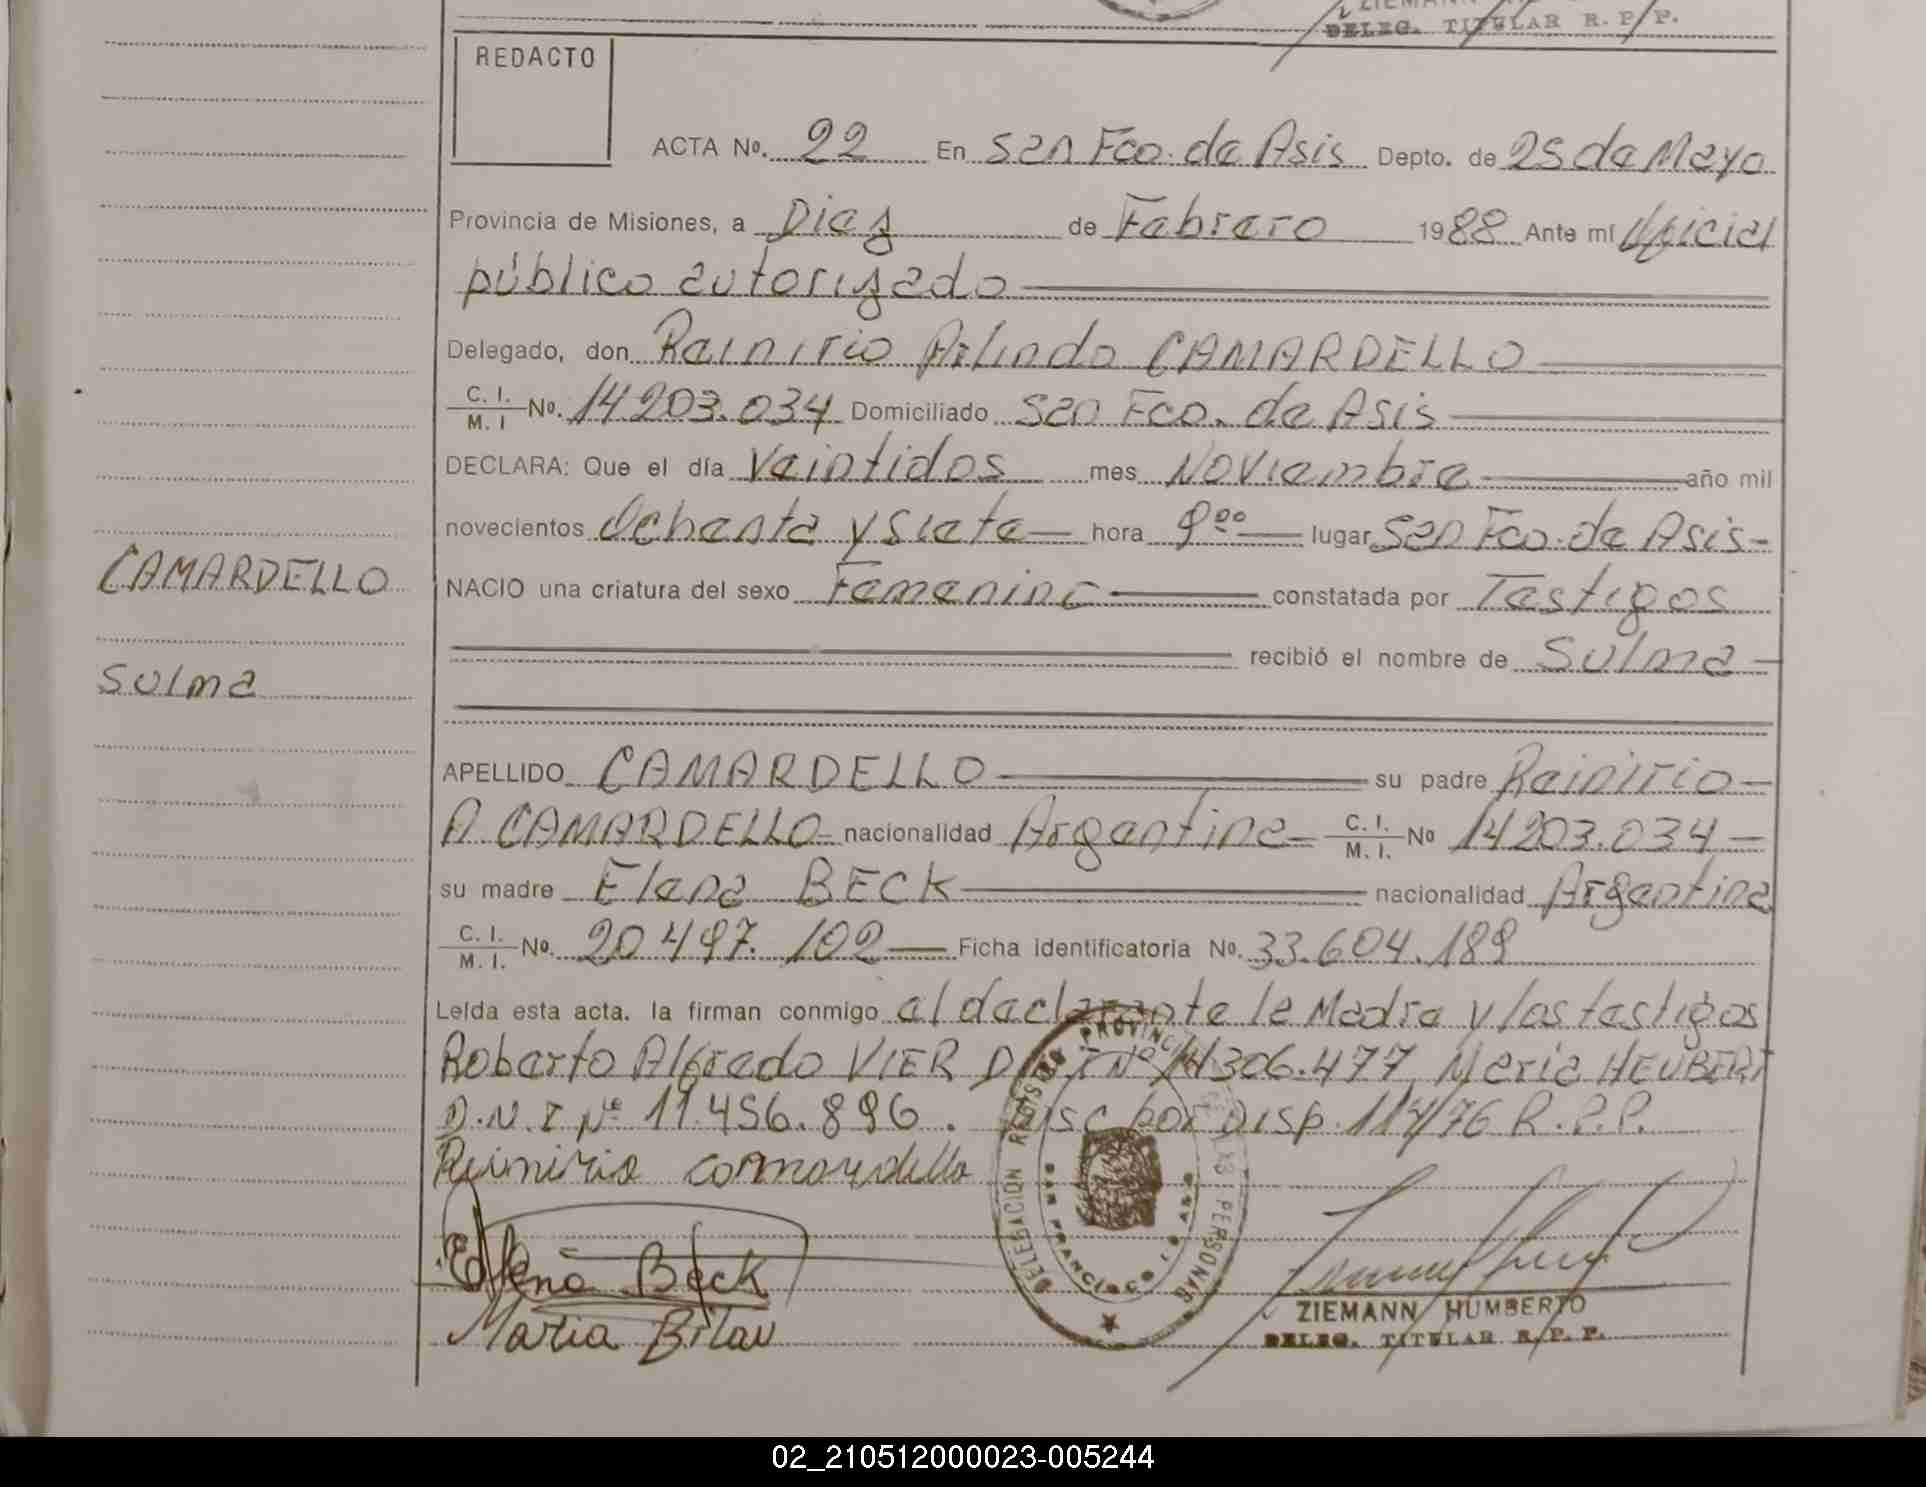 ZIEMANN
DELEG. TITULAR R. P. P.
REDACTO
ACTA Nº. 22 En San Fco. de Asis Depto. de 25 de Mayo
Provincia de Misiones, a Diez de Febrero 1988 Ante mí Oficial
público autorizado
Delegado, don Rainirio Arlindo CAMARDELLO
C. I. / M. I Nº. 14203.034 Domiciliado San Fco. de Asis
DECLARA: Que el día Veintidos mes Noviembre año mil
novecientos Ochenta y Siete hora 9ºº lugar San Fco. de Asis
CAMARDELLO
NACIO una criatura del sexo Femenino constatada por Testigos
recibió el nombre de Sulma
Sulma
APELLIDO CAMARDELLO su padre Rainirio
A. CAMARDELLO nacionalidad Argentina C. I. / M. I. Nº 14203.034
su madre Elena BECK nacionalidad Argentina
C. I. / M. I. Nº. 20497.102 Ficha identificatoria Nº. 33.604.189
Leída esta acta. la firman conmigo el declarante la Madre y los testigos
Roberto Alfredo VIER D.N.I Nº 14306.477, Maria HEUBERT
D.N.I Nº 11.456.896. Insc por Disp. 114/76 R.P.P.
Rainirio Camardello
Elena Beck
Maria Bilau
DELEGACION REGISTRO PROVINCIAL DE LAS PERSONAS
SAN FRANCISCO DE ASIS
ZIEMANN HUMBERTO
DELEG. TITULAR R. P. P.
02_210512000023-005244